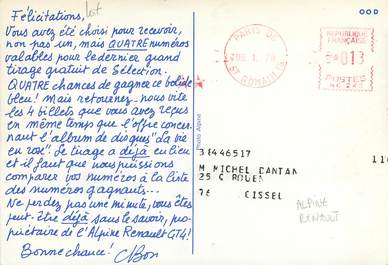 Félicitations,
lot
Vous avez été choisi pour recevoir,
non pas un, mais QUATRE numéros
valables pour le dernier grand
tirage gratuit de Sélection.
QUATRE chances de gagner ce bolide
bleu! Mais retournez-nous vite
les 4 billets que vous avez reçus
en même temps que l'offre concer-
nant l'album de disques "La vie
en rose". Le tirage a déjà eu lieu
et il faut que nous puissions
comparer vos numéros à la liste
des numéros gagnants...
Ne perdez pas une minute, vous êtes
peut-être déjà, sans le savoir, pro-
priétaire de l'Alpine Renault GT4!
Bonne chance!
Photo Alpine
OOD
PARIS DE
ST ROMAIN
REPUBLIQUE
FRANÇAISE
013
POSTES
31446517
M MICHEL DANTAN
25 G ROUEN
76 CISSEL
110
ALPINE
RENAULT